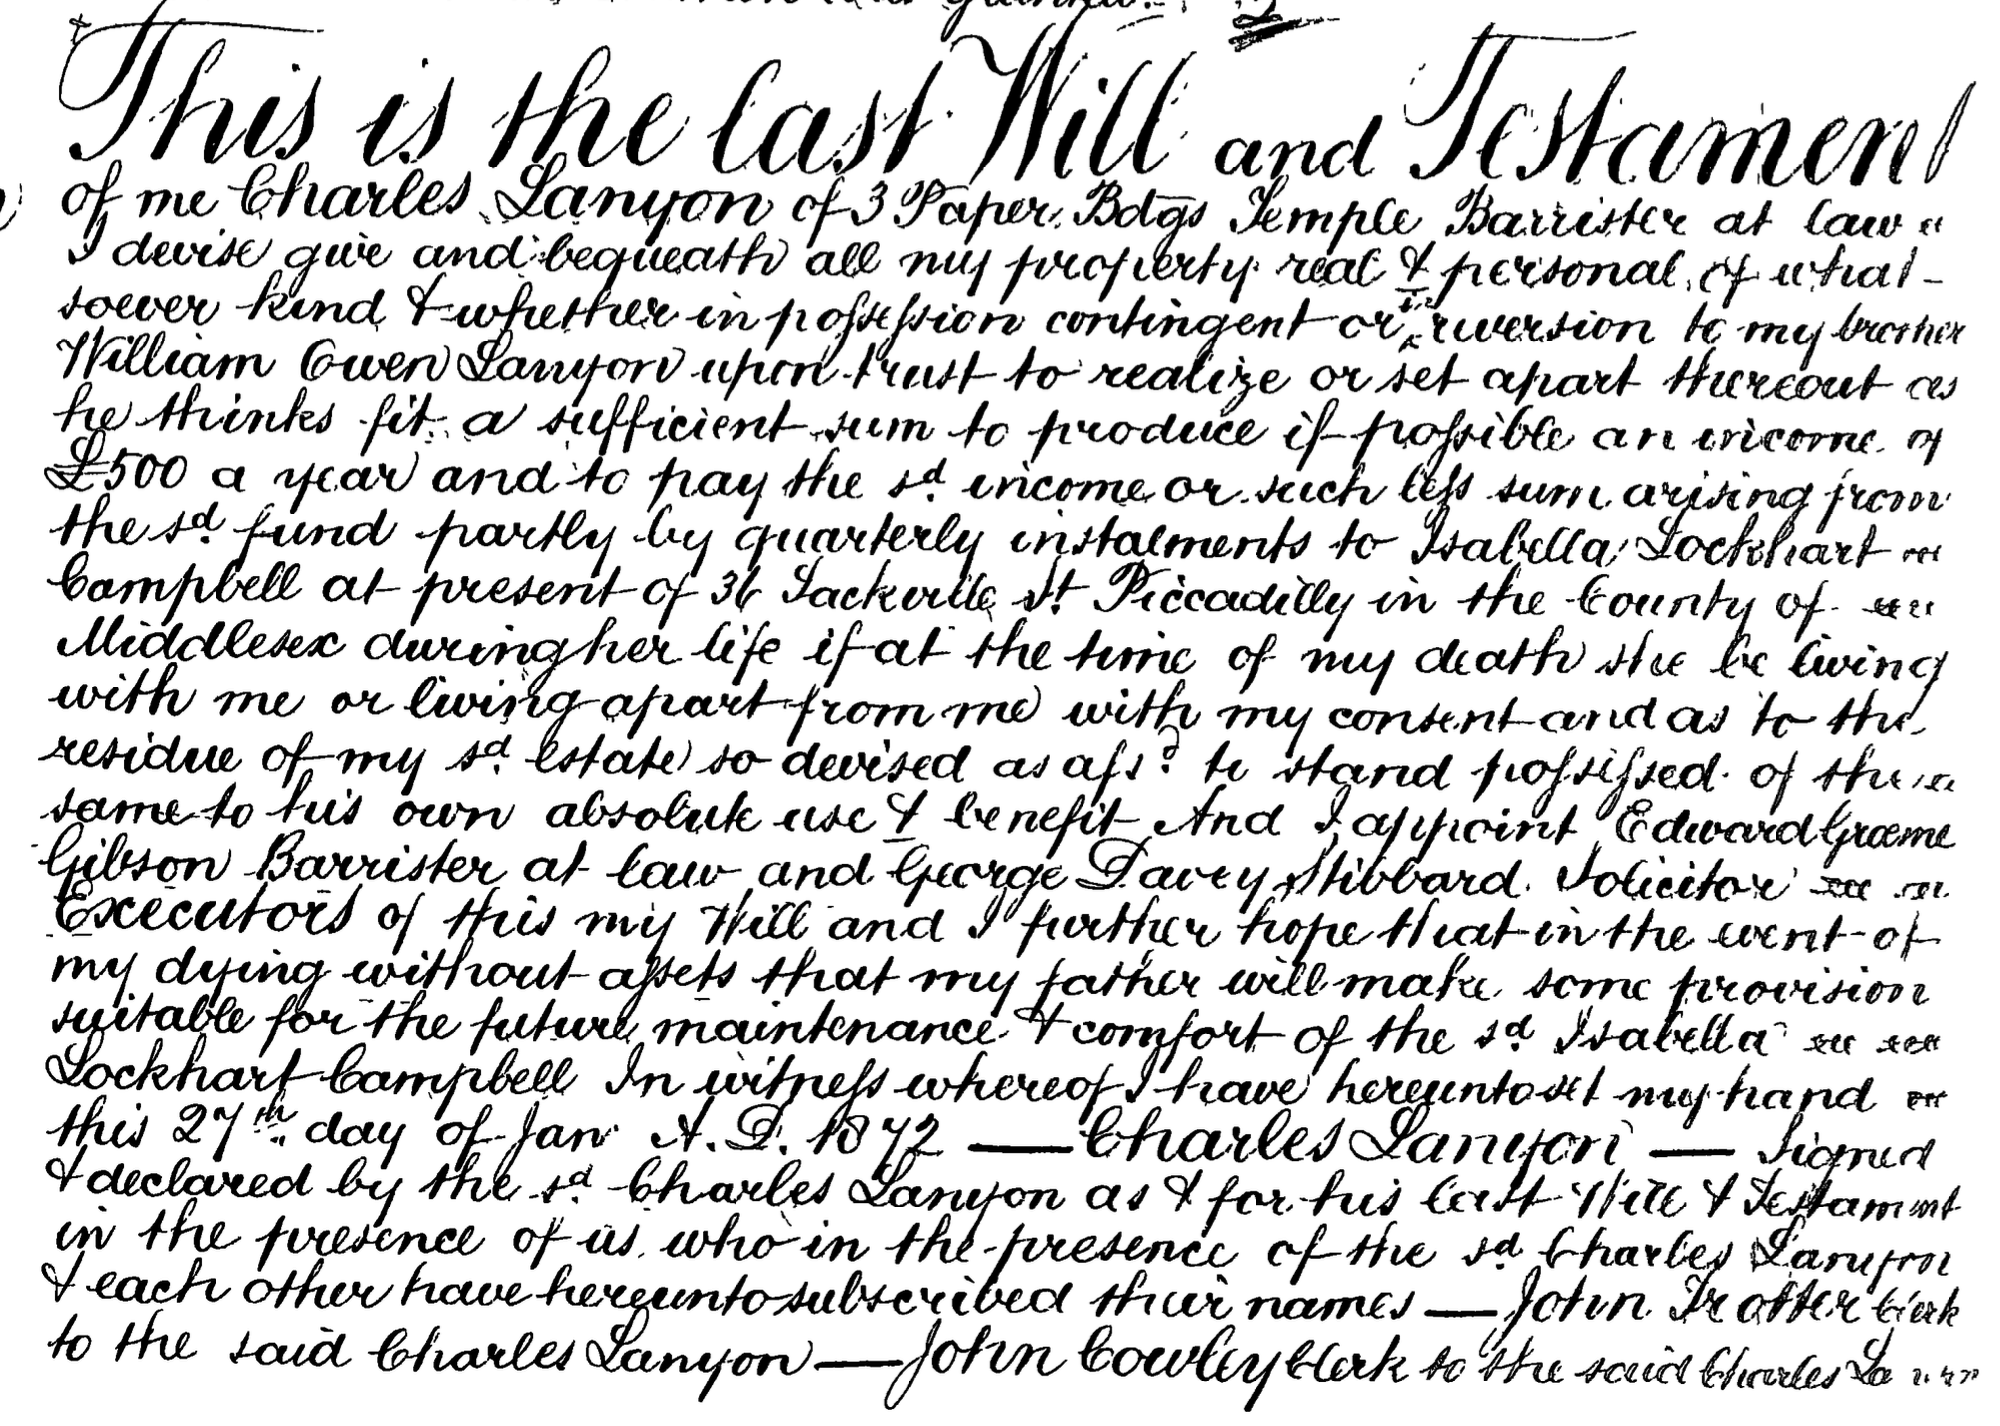 This is the last Will and Testament
of me Charles Lanyon of 3 Paper Bdgs Temple Barrister at law
I devise give and bequeath all my property real & personal of what-
soever kind & whether in possession contingent or in reversion to my brother
William Owen Lanyon upon trust to realize or set apart thereout as
he thinks fit a sufficient sum to produce if possible an income of
£500 a year and to pay the sd. income or such less sum arising from
the sd. fund partly by quarterly instalments to Isabella Lockhart
Campbell at present of 36 Sackville St Piccadilly in the County of
Middlesex during her life if at the time of my death she be living
with me or living apart from me with my consent and as to the
residue of my sd. estate so devised as afsd. to stand possessed of the
same to his own absolute use & benefit And I appoint Edward Graeme
Gibson Barrister at law and George Davey Stibbard Solicitor
Executors of this my Will and I further hope that in the event of
my dying without assets that my father will make some provision
suitable for the future maintenance & comfort of the sd. Isabella
Lockhart Campbell In witness whereof I have hereunto set my hand
this 27th. day of Jan A.D. 1872 — Charles Lanyon — Signed
& declared by the sd. Charles Lanyon as & for his last Will & Testament
in the presence of us who in the presence of the sd. Charles Lanyon
& each other have hereunto subscribed their names — John Trotter Clerk
to the said Charles Lanyon — John Cowley Clerk to the said Charles Lanyon